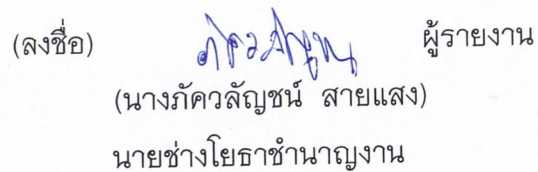 (ลงชื่อ) ภัควลัญชน์ ผู้รายงาน
(นางภัควลัญชน์ สายแสง)
นายช่างโยธาชำนาญงาน